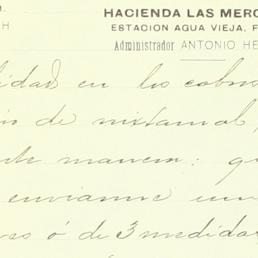 HACIENDA LAS MERC
H ESTACION AGUA VIEJA, F
Administrador ANTONIO HE
lidad en los cobros
de nixtamal,
manera: qu
enviarme un
ó de 3 medidas